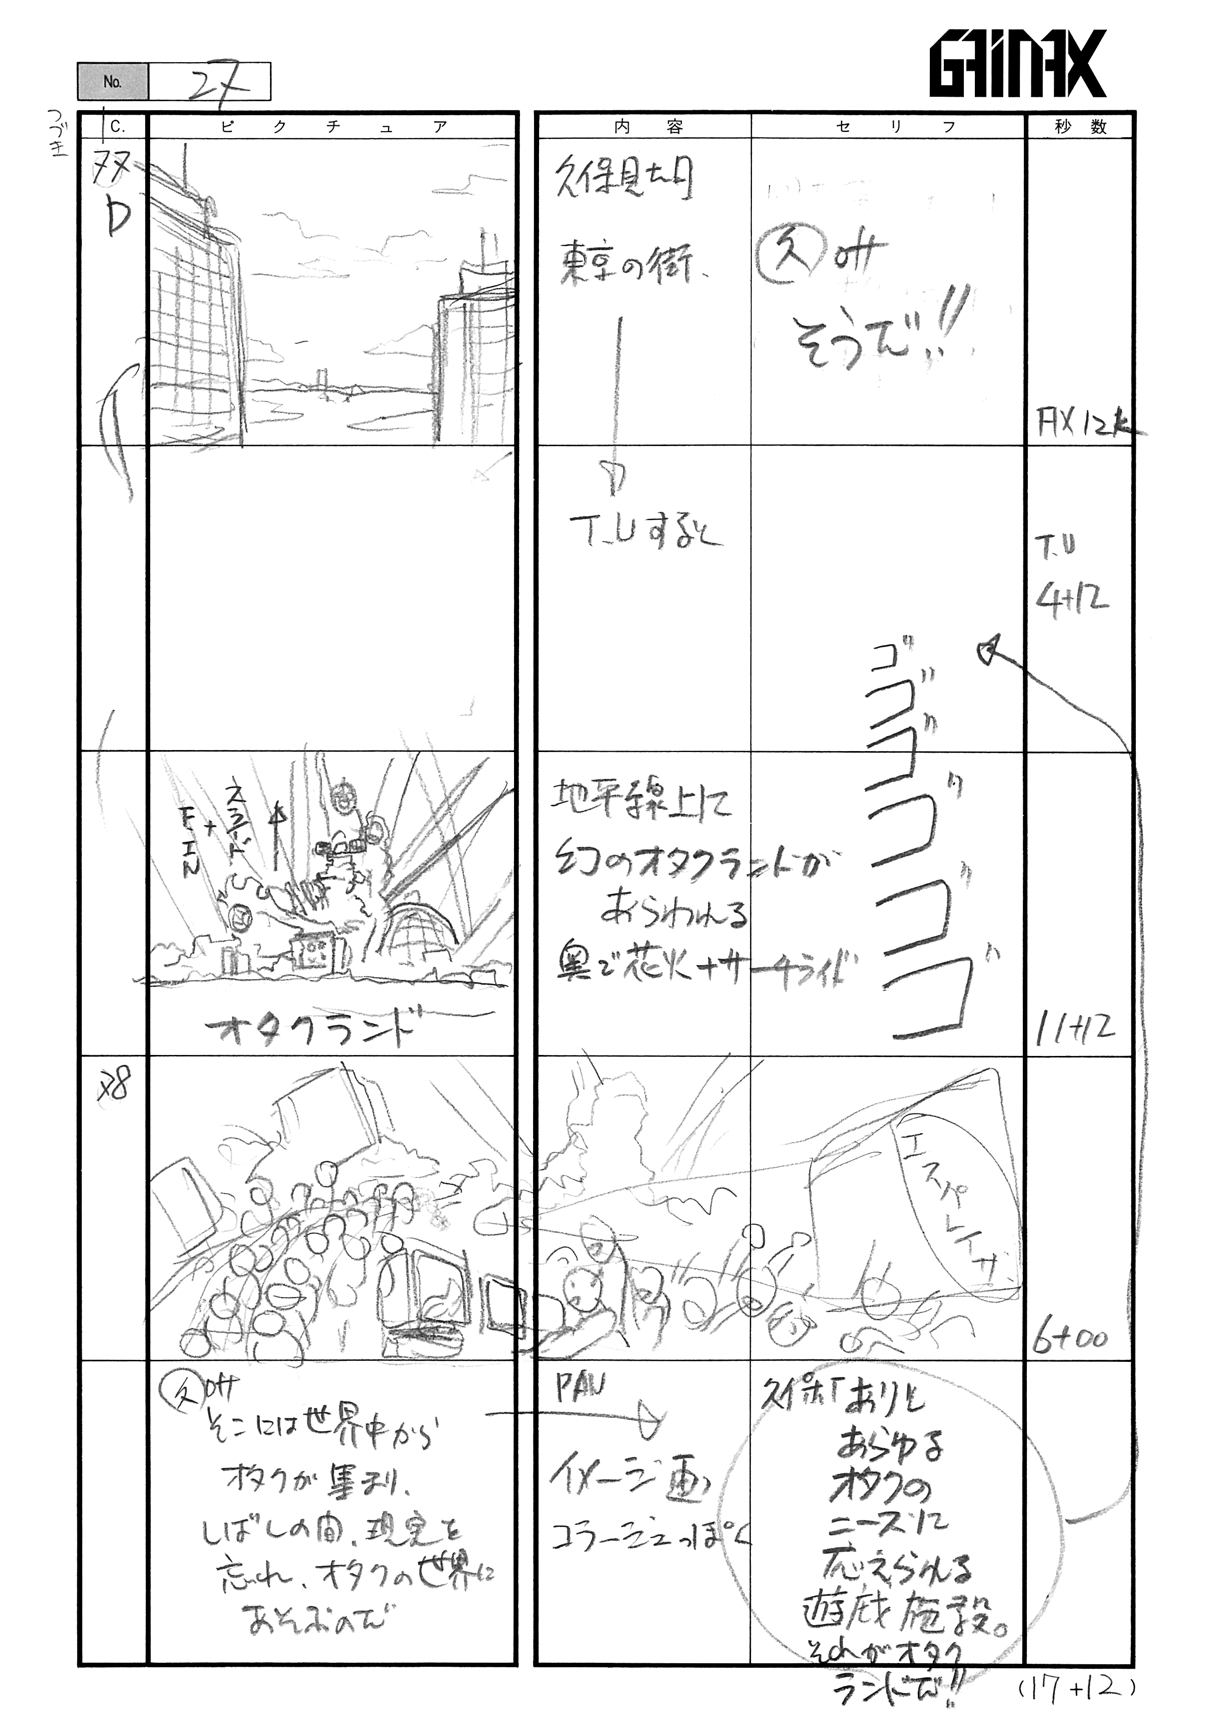 GAINAX
No.
27
つづき
C.
ピクチュア
内容
セリフ
秒数
77
D
久保見た目
東京の街、
久 off
そうだ!!
T.Uすると
T.U
4+12
ゴゴゴゴゴゴ
スライド
+
F・IN
オタクランド
地平線上に
幻のオタクランドが
あらわれる
奥で花火+サーチライト
11+12
78
エスパレイザ
6+00
久 off
そこには世界中から
オタクが集まり、
しばしの間、現実を
忘れ、オタクの世界に
あそぶのだ
PAN
イメージ画
コラージュっぽく
「ありと
あらゆる
オタクの
ニーズに
応えられる
遊戯施設。
それがオタク
ランドだ!!
(17+12)